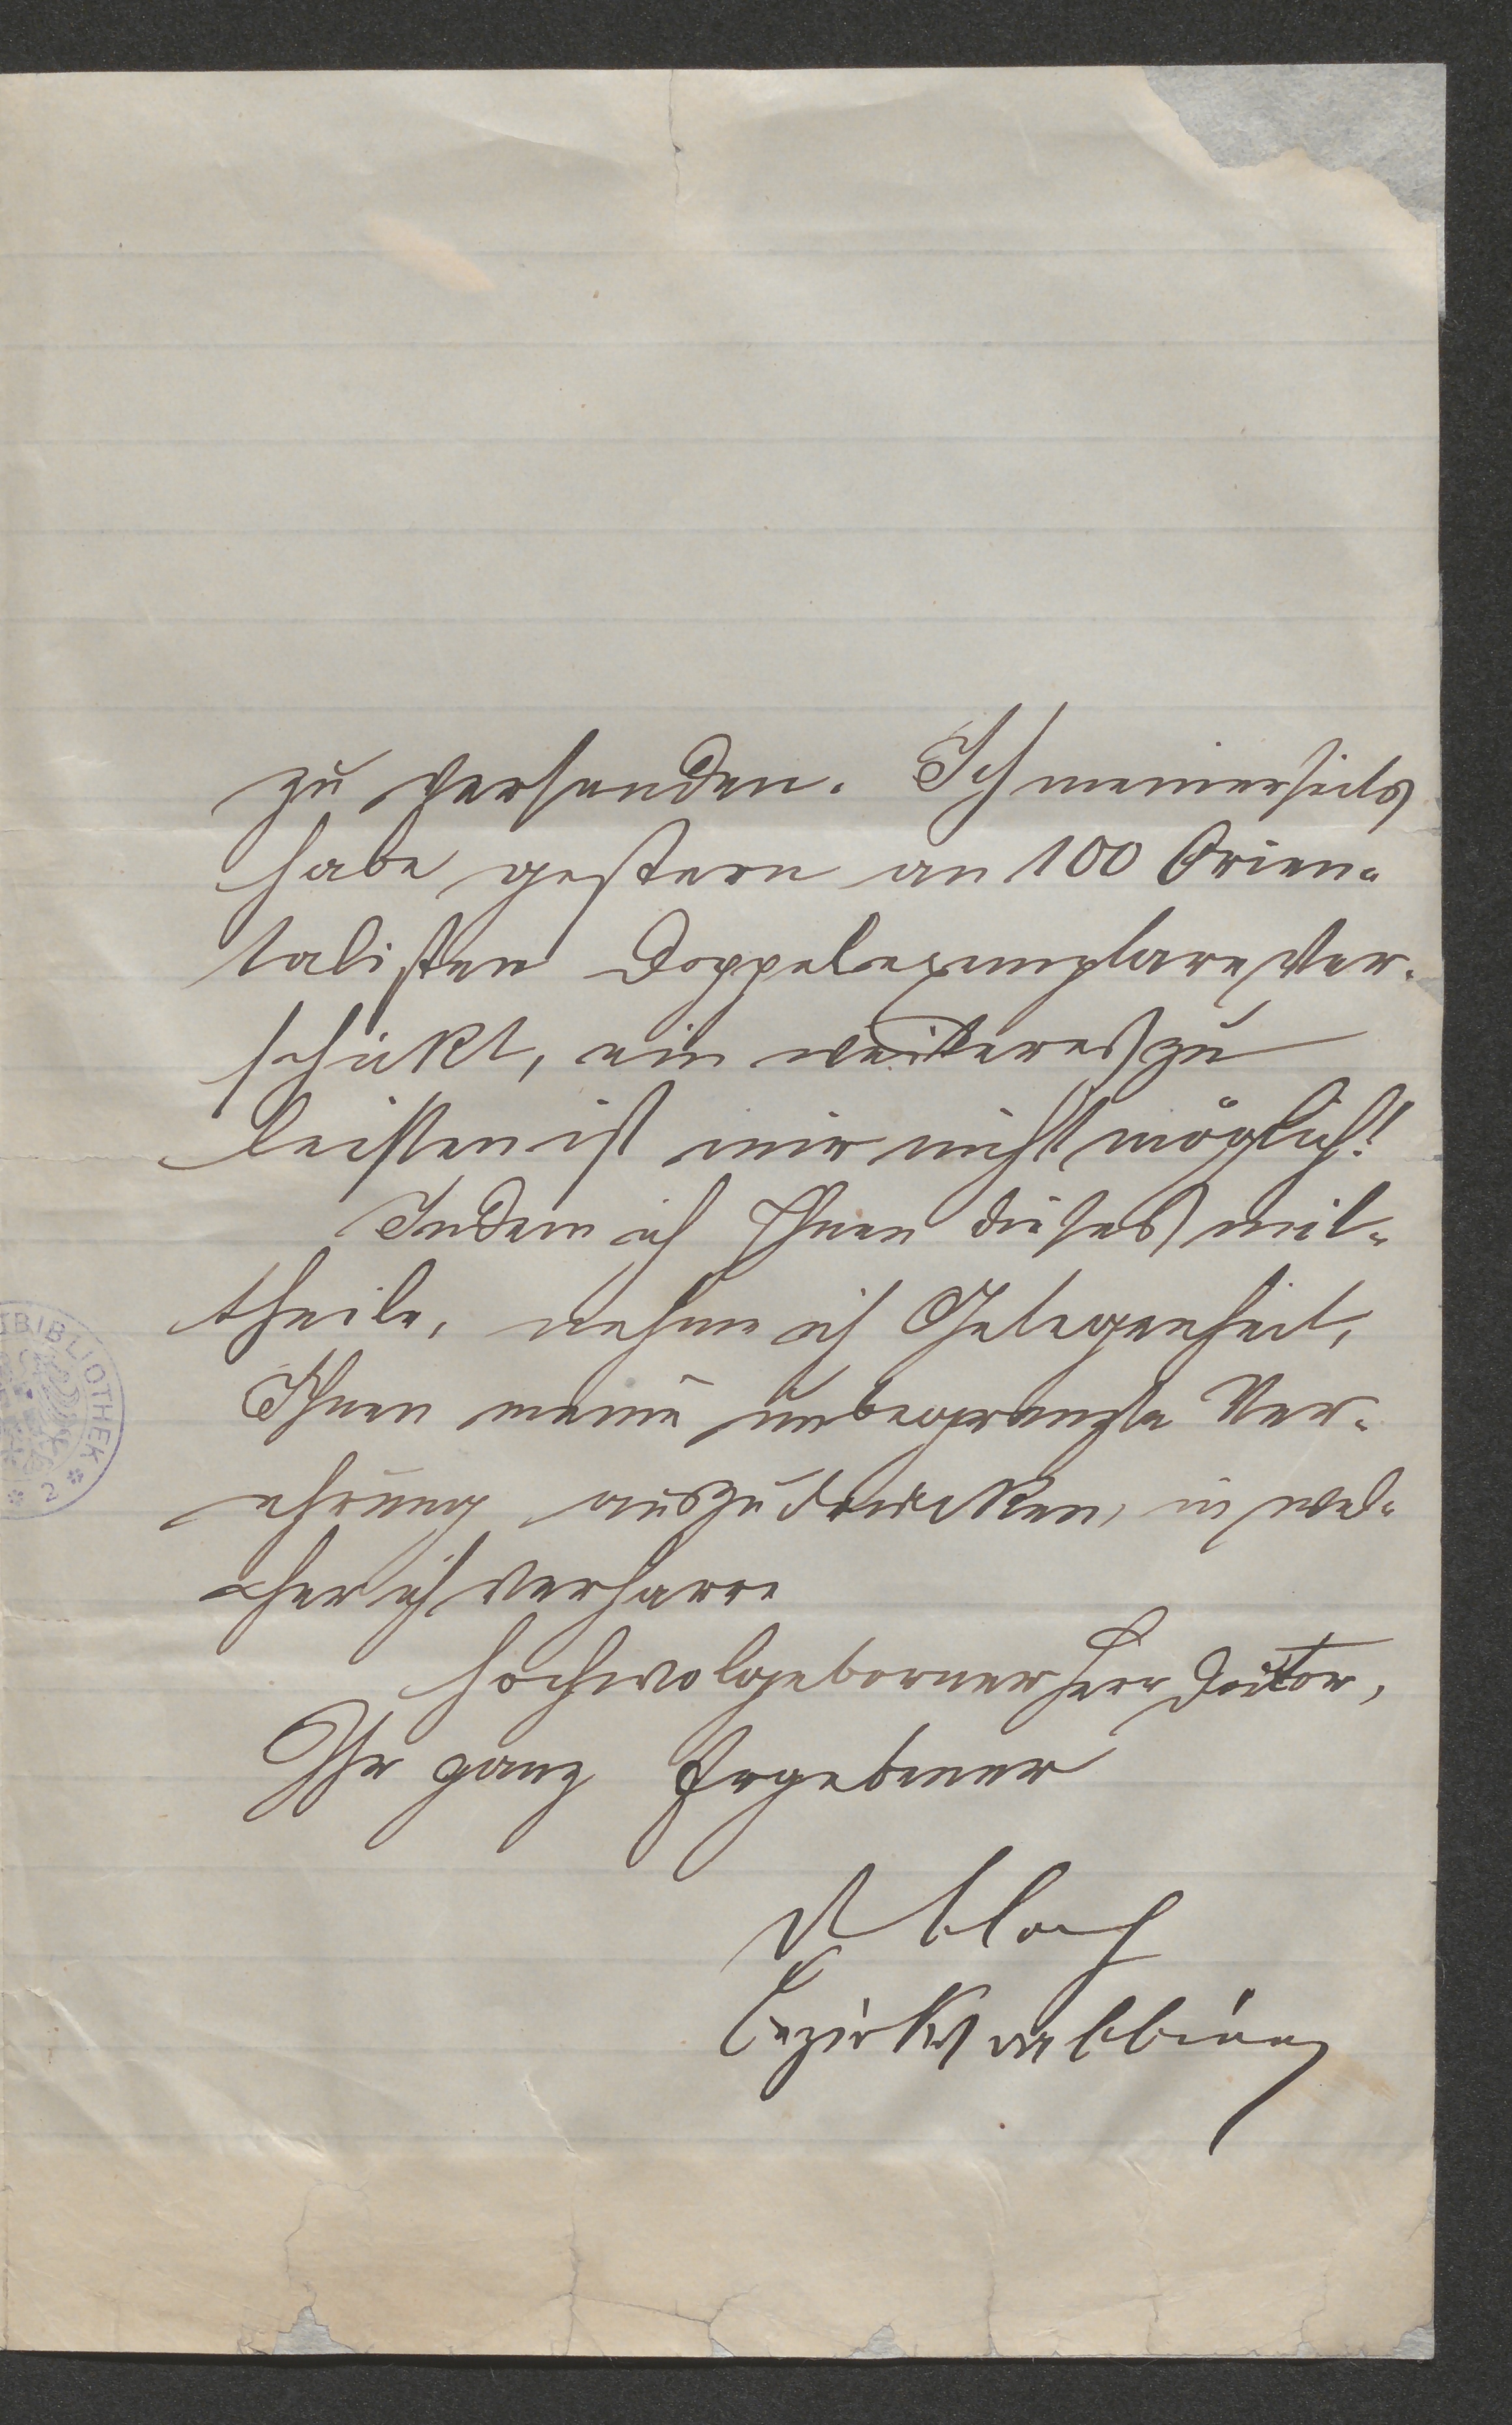 zu versenden. Ich meinerseits
habe gestern an 100 Orien-
talisten Doppelexemplare ver-
schickt, ein weiteres zu
leisten ist mir nicht möglich!
Indem ich Ihnen dieses mit-
theile, nehme ich Gelegenheit,
Ihnen meine unbegrenzte Ver-
ehrung auszudrücken, in wel-
cher ich verharre
hochwolgeborner Herr Doctor,
Ihr ganz Ergebener
Dr Bloch
Bezirksrabbiner
BIBLIOTHEK
* 2 *